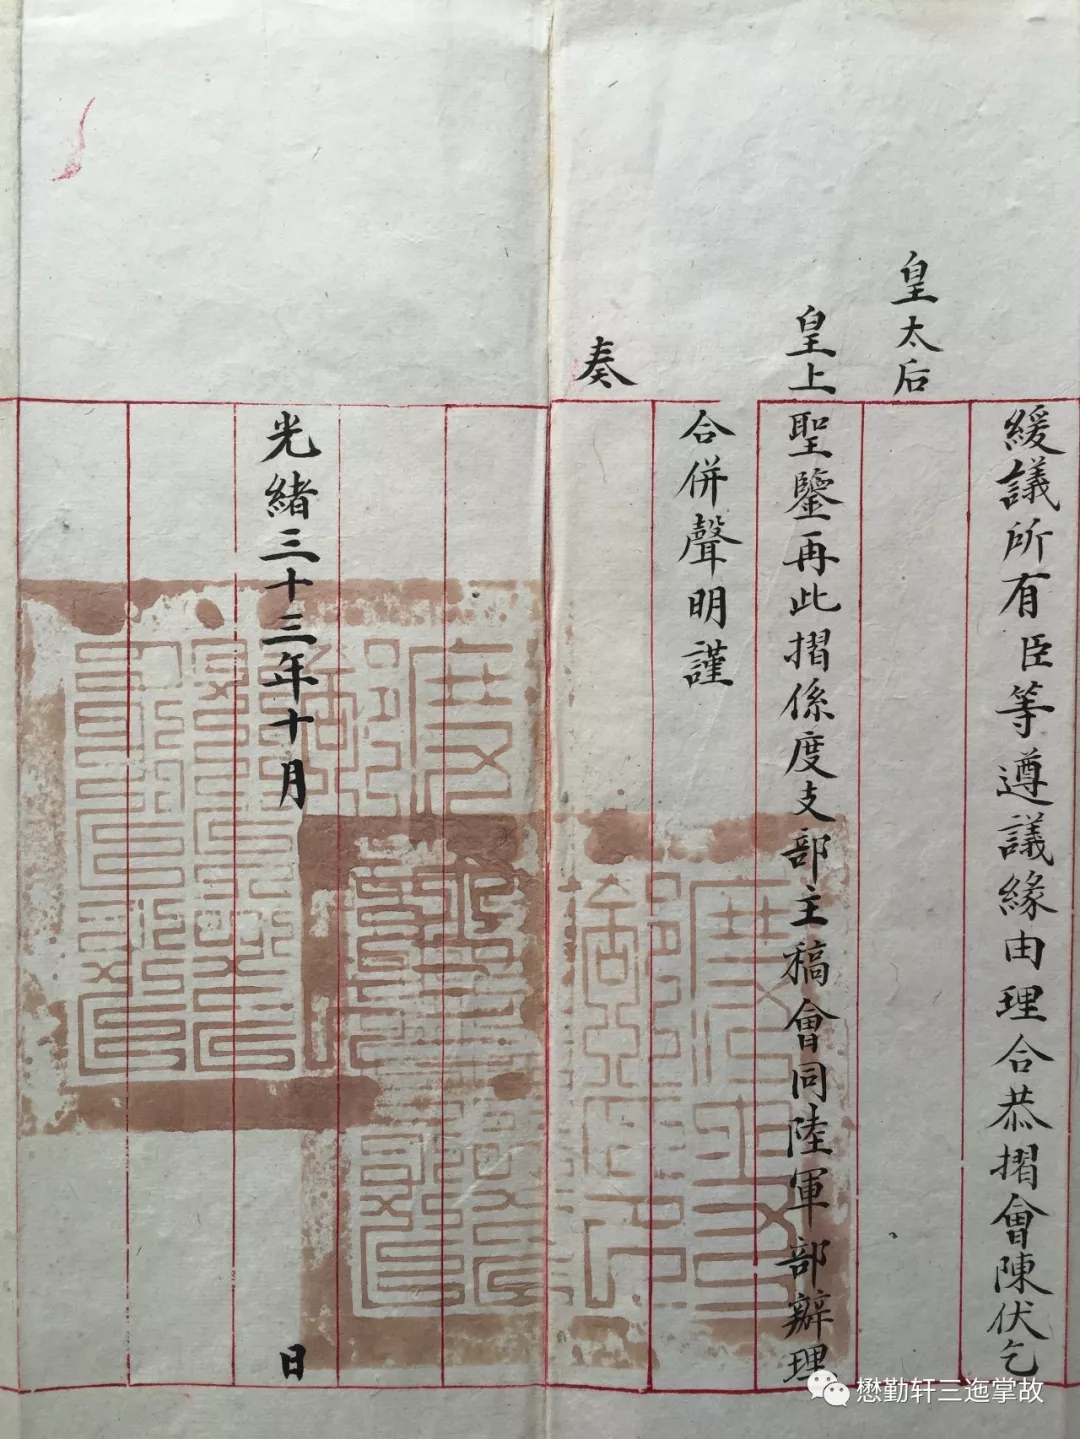 緩議所有臣等遵議緣由理合恭摺會陳伏乞
皇太后
皇上聖鑒再此摺係度支部主稿會同陸軍部辦理
合併聲明謹
奏
光緒三十三年十月 日
懋勤轩三迤掌故